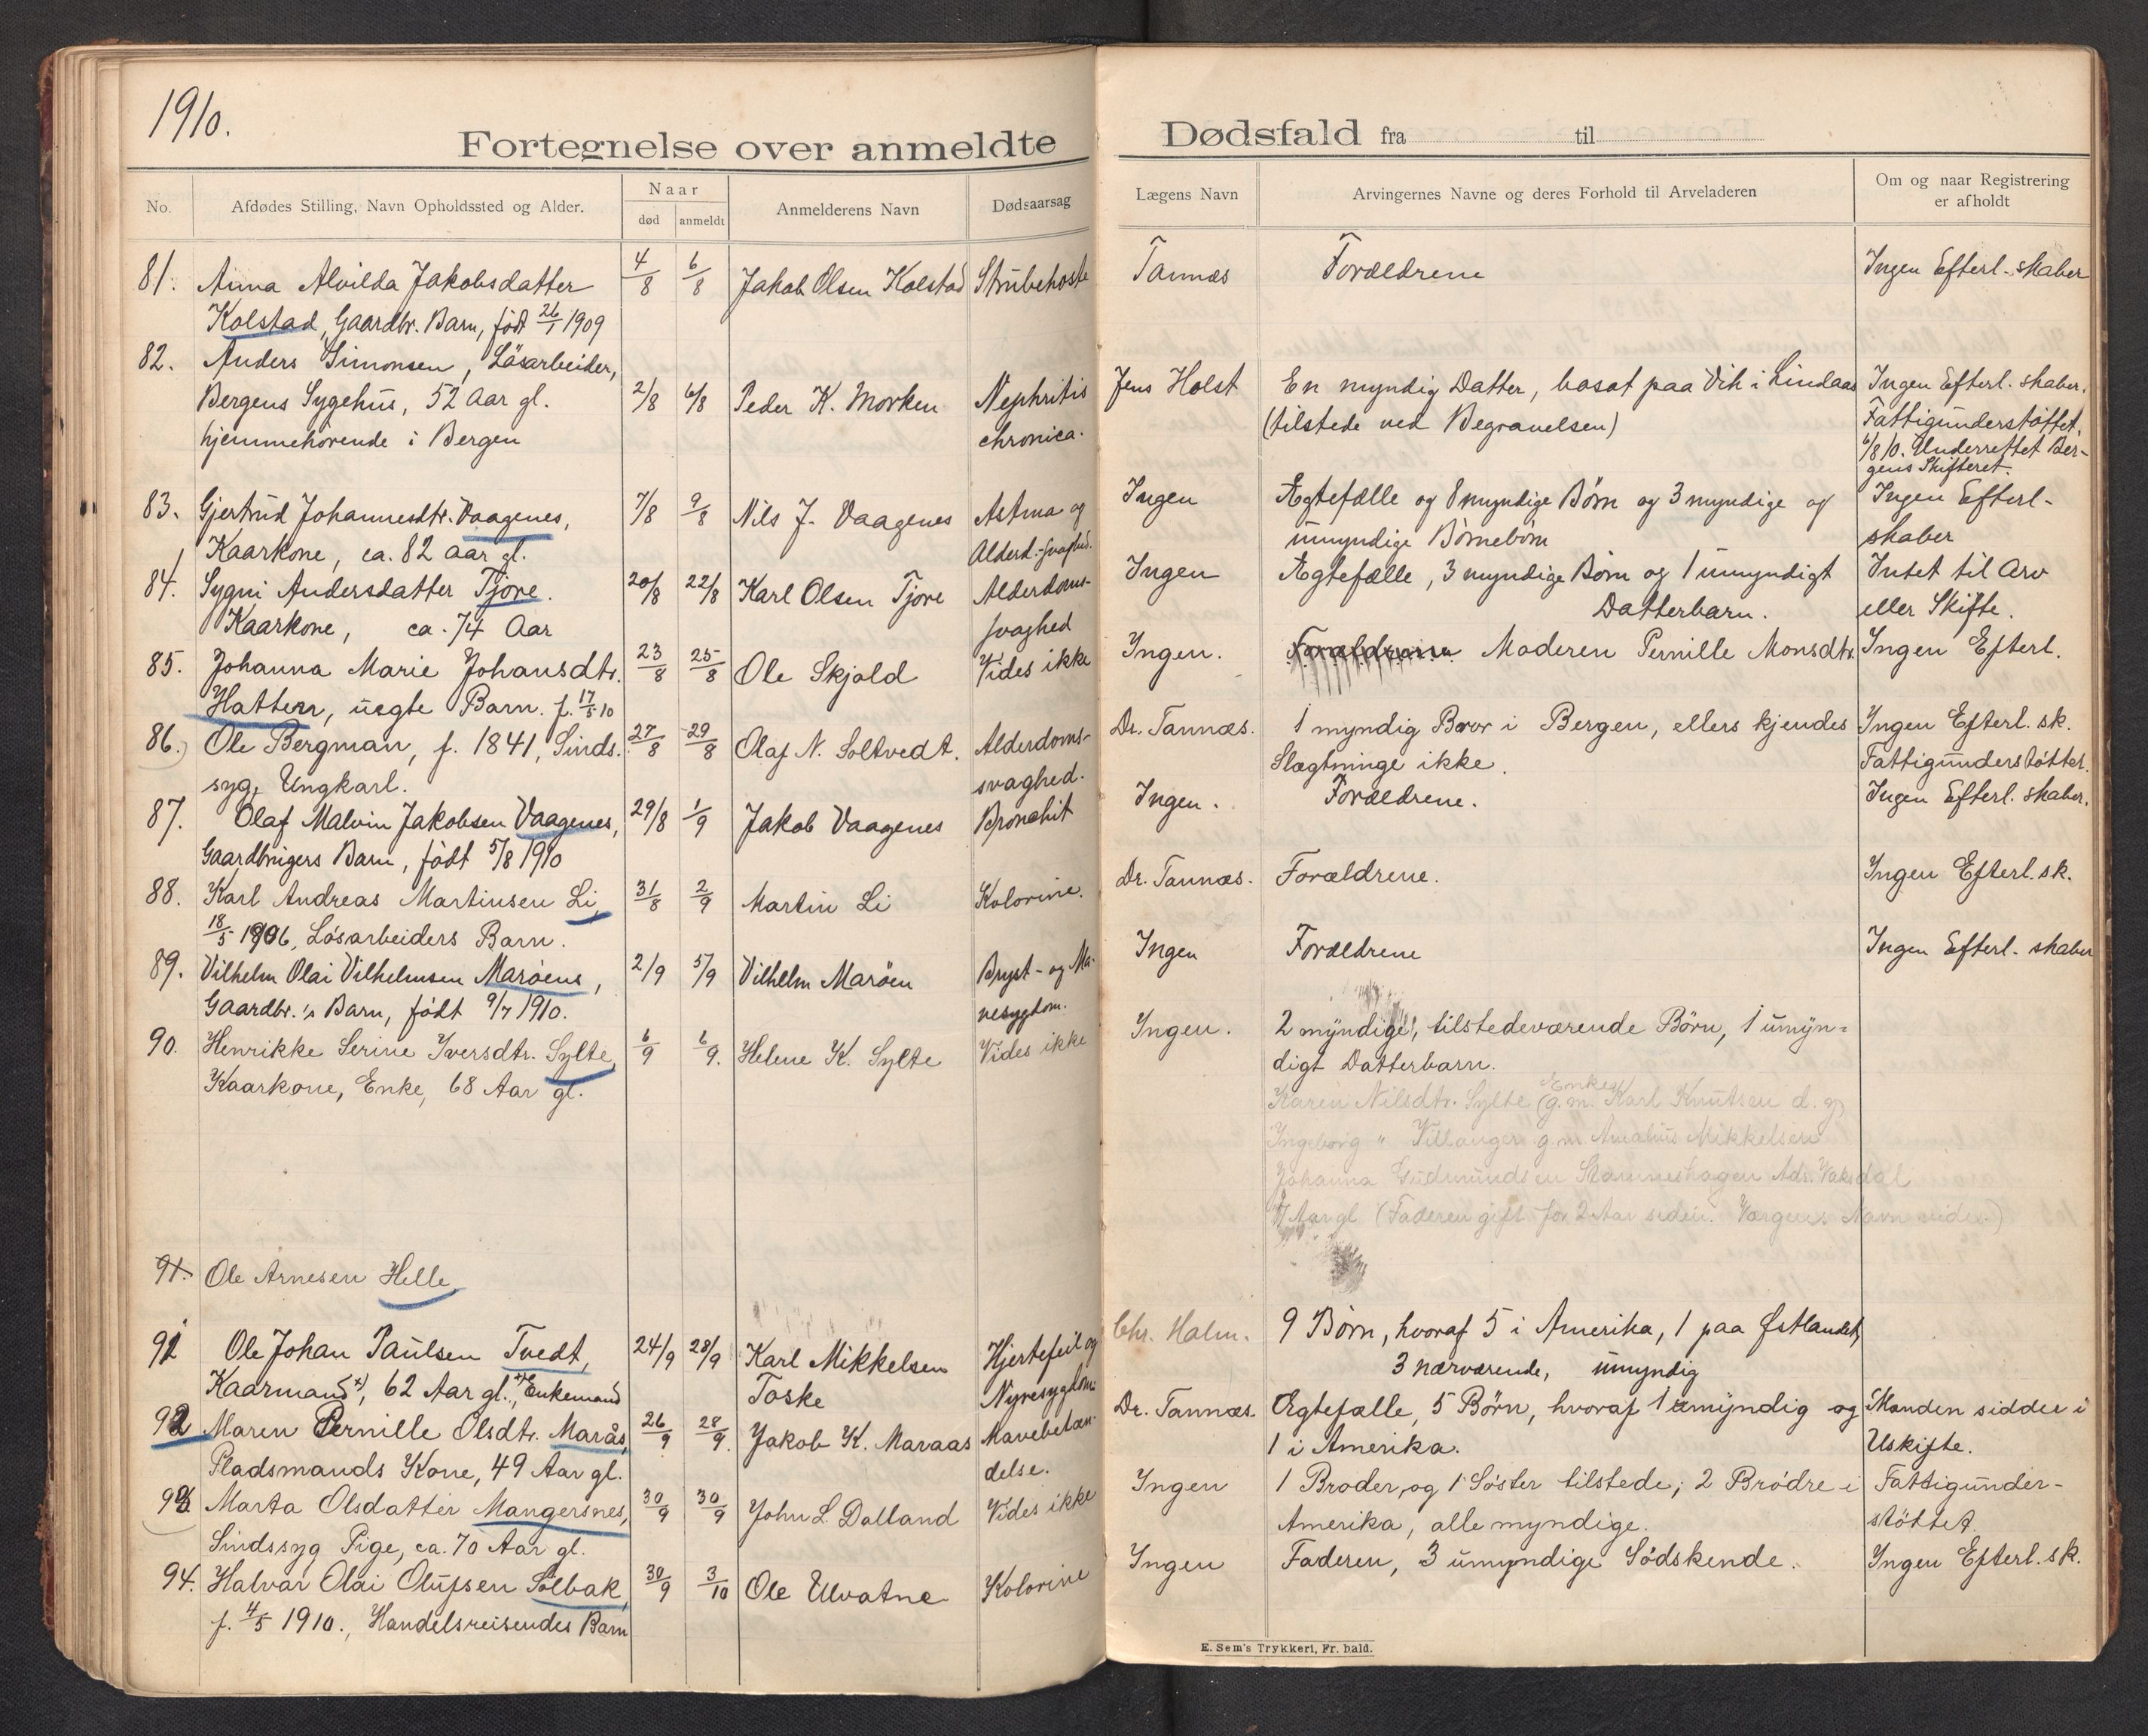 1910.
Fortegnelse over anmeldte Dødsfald fra til
No. Afdødes Stilling, Navn Opholdssted og Alder. Naar død anmeldt Anmelderens Navn Dødsaarsag Lægens Navn Arvingernes Navne og deres Forhold til Arveladeren Om og naar Registrering er afholdt
81. Anna Alvilda Jakobsdatter 4/8 6/8 Jakob Olsen Kolstad Strubehoste Tannæs Forældrene Ingen Efterl.skaber
Kolstad, Gaardbr. Barn, født 26/1 1909
82. Anders Simonsen, Løsarbeider,
Bergens Sygehus, 52 Aar gl. 2/8 6/8 Peder K. Morken Nephritis Jens Holst En myndig Datter, bosat paa Vik i Lindaas Ingen Efterl.skaber.
hjemmehørende i Bergen chronica. (tilstede ved Begravelsen) Fattigunderstøttet.
6/8 10. Underrettet Ber-
gens Skifteret.
83. Gjertrud Johannesdtr. Vaagenes, 7/8 9/8 Nils J. Vaagenes Astma og Ingen Ægtefælle og 8 myndige Børn og 3 myndige og Ingen Efterl-
Kaarkone, ca. 82 Aar gl. Alderd.svaghed. umyndige Børnebørn skaber
84. Sygni Andersdatter Tjore. 20/8 22/8 Karl Olsen Tjore Alderdoms- Ingen Ægtefælle, 3 myndige Børn og 1 umyndigt Intet til Arv
Kaarkone, ca. 74 Aar svaghed Datterbarn. eller Skifte.
85. Johanna Marie Johansdtr. 23/8 25/8 Ole Skjold Vides ikke Ingen. Forældrene Moderen Pernille Monsdtr. Ingen Efterl.
Hatten, uegte Barn. f. 17/5 10
86. Ole Bergman, f. 1841, Sinds- 27/8 29/8 Olaf N. Soltvedt. Alderdoms- Dr. Tannæs. 1 myndig Bror i Bergen, ellers kjendes Ingen Efterl.sk.
syg, Ungkarl. svaghed. Slægtninge ikke. Fattigunderstøttet.
87. Olaf Malvin Jakobsen Vaagenes, 29/8 1/9 Jakob Vaagenes Bronchit Ingen. Forældrene. Ingen Efterl.skaber.
Gaardbrugers Barn, født 5/8 1910
88. Karl Andreas Martinsen Li, 31/8 2/9 Martin Li Kolorine. Dr. Tannæs. Forældrene. Ingen Efterl.sk.
18/5 1906, Løsarbeiders Barn.
89. Vilhelm Olai Vilhelmsen Marøens, 2/9 5/9 Vilhelm Marøen Bryst- og Ma- Ingen Forældrene Ingen Efterl.skaber
Gaardbr.'s Barn, født 9/7 1910. vesygdom.
90. Henrikke Serine Iversdtr. Sylte, 6/9 6/9. Helene K. Sylte Vides ikke Ingen. 2 myndige, tilstedeværende Børn, 1 umyn-
Kaarkone, Enke, 68 Aar gl. digt Datterbarn.
Enke
Karen Nilsdtr. Sylte (g.m. Karl Knutsen d.
Ingeborg " Villanger g.m. Mikkelsen
Johanna Gudmundsen Adr. Vaksdal
Aar gl (Faderen gift for 2 Aar siden. Værgens Navn vides
91. Ole Arnesen Helle
91 Ole Johan Paulsen Tvedt, 24/9 28/9 Karl Mikkelsen Hjertefeil og Chr. Holm. 9 Børn, hvoraf 5 i Amerika, 1 paa Østlandet,
Kaarmand x), 62 Aar gl., x) Enkemand Toske Nyresygdom. 3 nærværende, umyndig
92 Maren Pernille Olsdtr. Marås, 26/9 28/9. Jakob K. Maraas Mavebetæn- Dr. Tannæs. Ægtefælle, 5 Børn, hvoraf 1 umyndig og Manden sidder i
Pladsmands Kone, 49 Aar gl. delse. 1 i Amerika. Uskifte.
93. Marta Olsdatter Mangersnes, 30/9 30/9 John L. Dalland Vides ikke Ingen 1 Broder, og 1 Søster tilstede; 2 Brødre i Fattigunder-
Sindssyg Pige, ca. 70 Aar gl. Amerika, alle myndige. støttet.
94. Halvar Olai Olufsen Solbak, 30/9 3/10 Ole Ulvatne Kolorine Ingen Faderen, 3 umyndige Sødskende. Ingen Efterl.sk.
f. 4/5 1910., Handelsreisendes Barn
E. Sem's Trykkeri, Fr. hald.